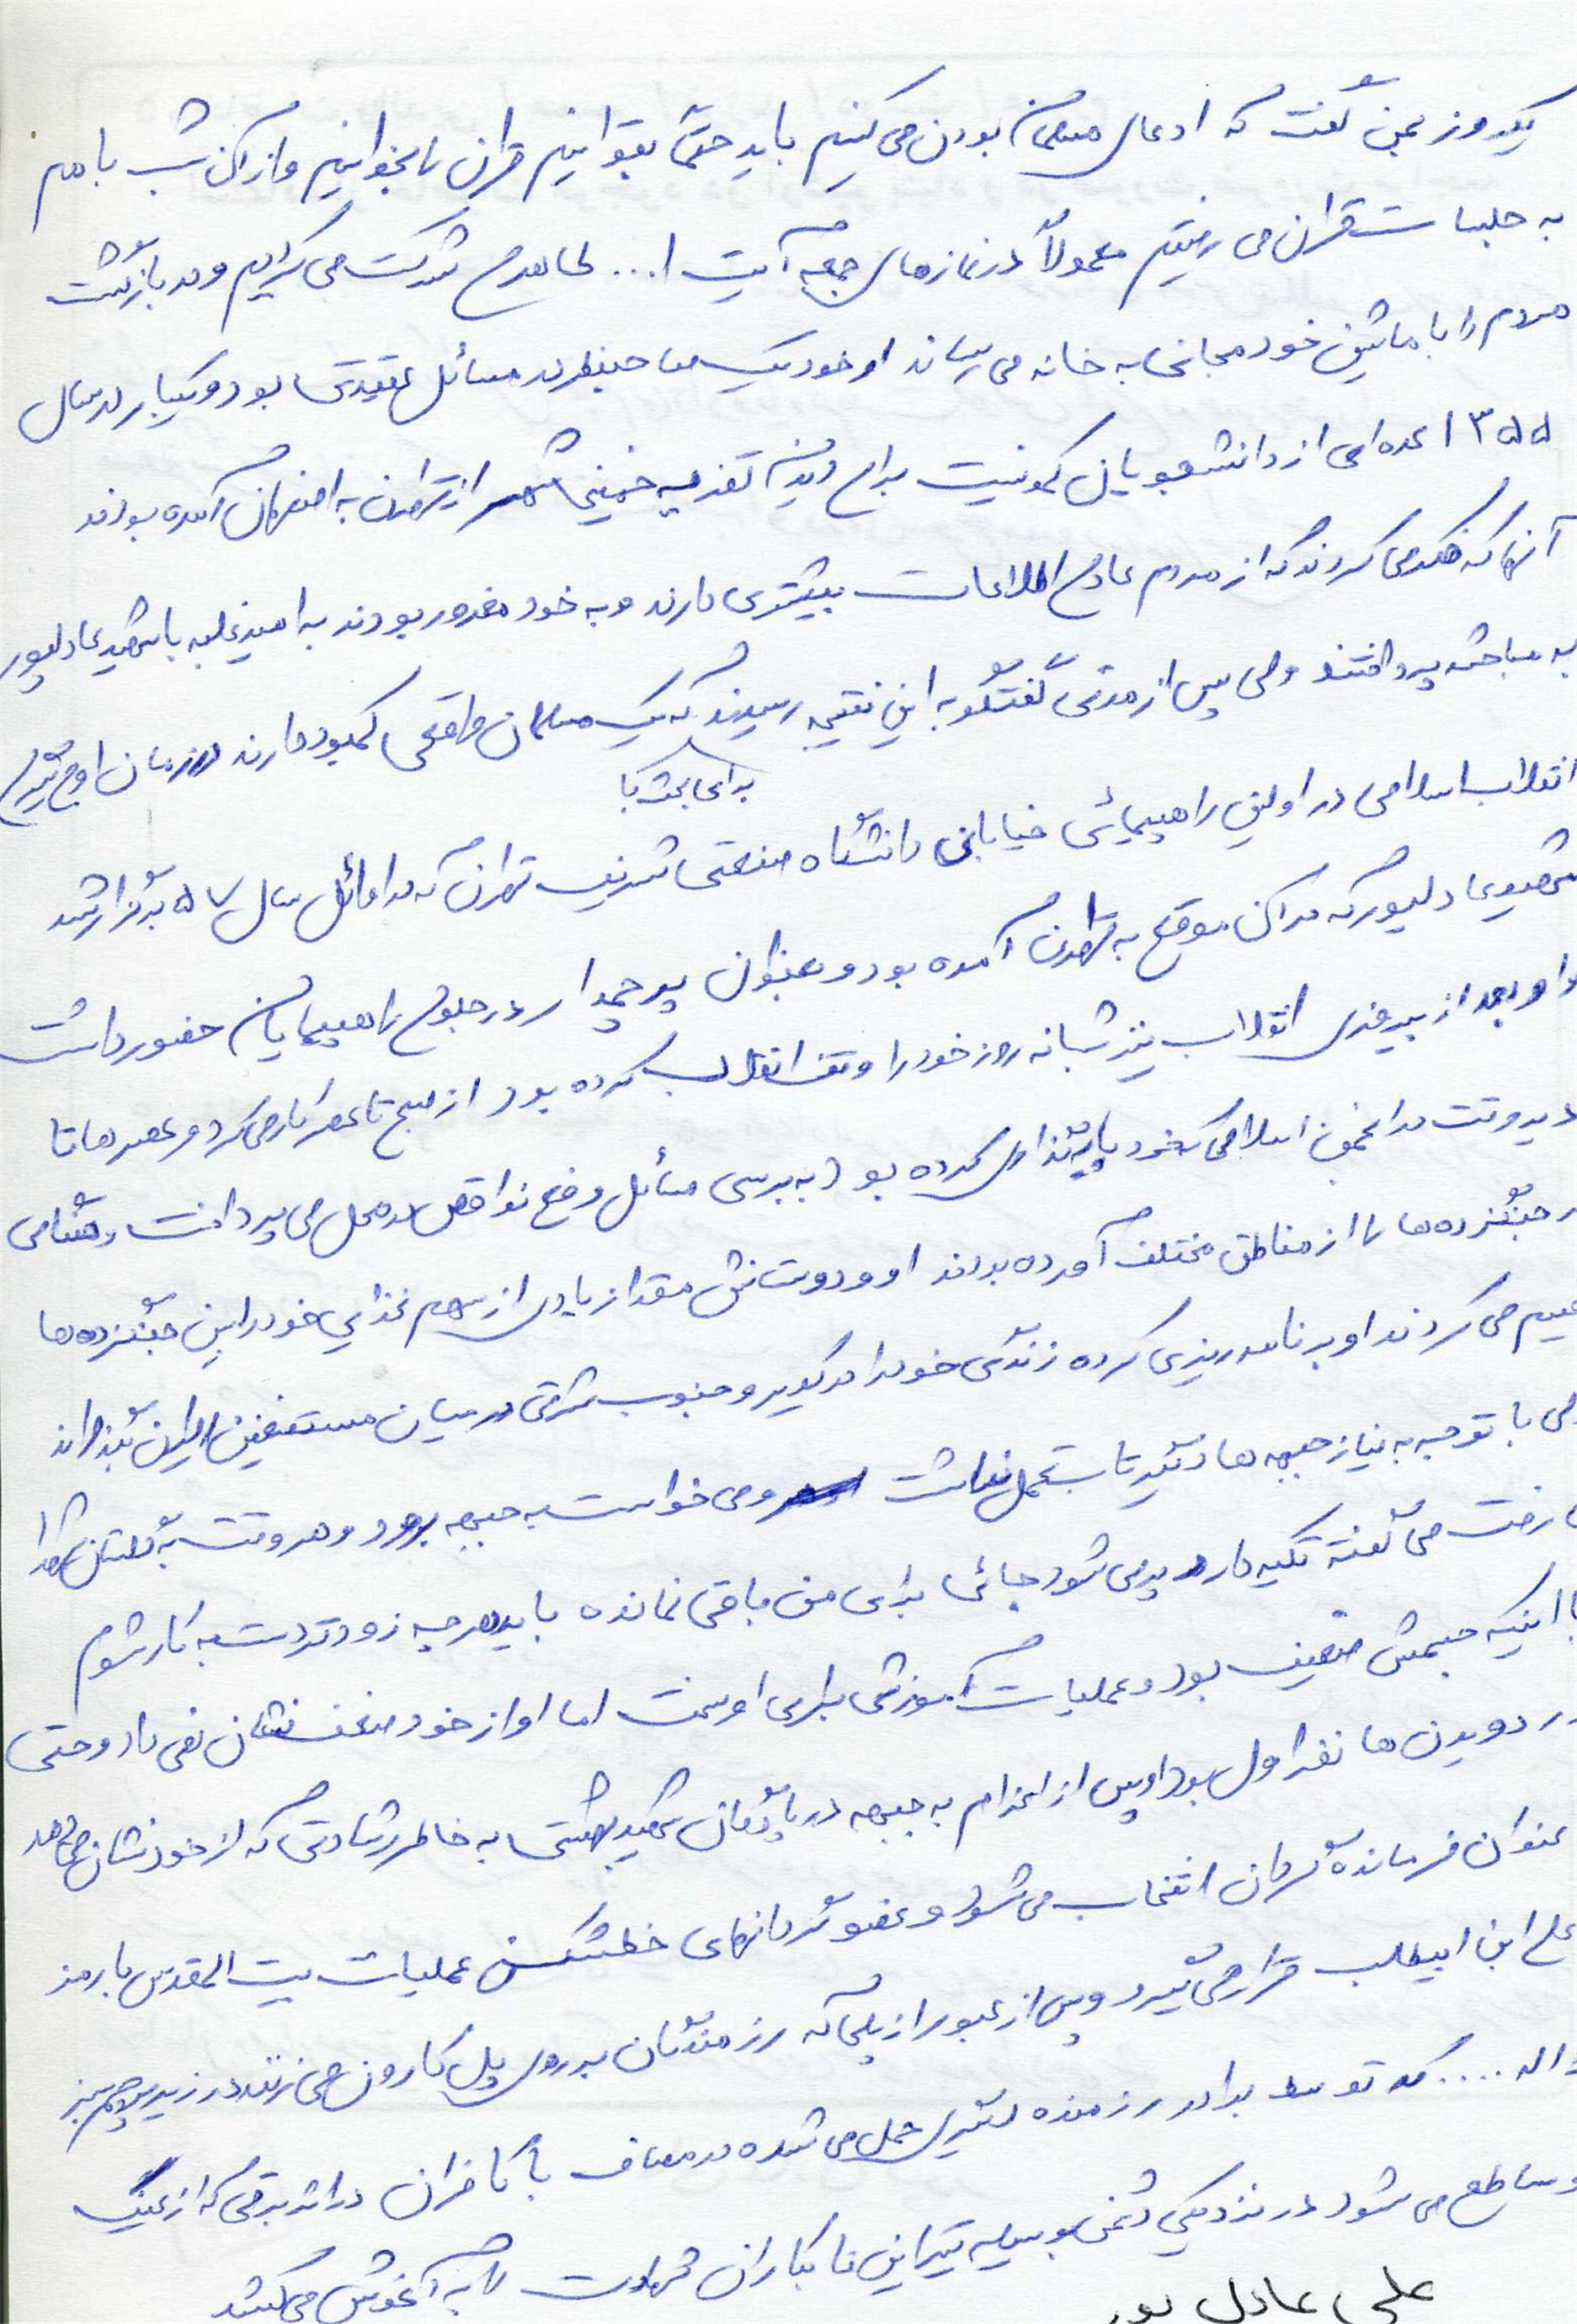 یکروز بمن گفت که ادعای مسلمان بودن می کنیم باید حتماً بتوانیم قرآن را بخوانیم و از آن شب با هم
به جلسات قرآن می رفتیم معمولاً در نمازهای جمعه آیت ا... طاهری شرکت می کردیم و در بازگشت
مردم را با ماشین خود مجانی به خانه می رساند او خود یک صاحبنظر در مسائل عقیدتی بود و یکبار در سال
۱۳۵۵ عده ای از دانشجویان کمونیست برای دیدن تعزیه خمینی شهر از تهران به اصفهان آمده بودند
آنها که فکر می کردند که از مردم عادی اطلاعات بیشتری دارند و به خود مغرور بودند به امید غلبه با شهید عادلپور
به مباحثه پرداختند ولی پس از مدتی گفتگو به این نتیجه رسیدند که برای بحث با یک مسلمان واقعی کمبود دارند در زمان اوج گیری
انقلاب اسلامی در اولین راهپیمائی خیابانی دانشگاه صنعتی شریف تهران که در اوائل سال ۵۷ برگزار شد
شهید عادلپور که در آن موقع به تهران آمده بود و بعنوان پرچمدار در جلوی راهپیمایان حضور داشت
و او بعد از پیروزی انقلاب نیز شبانه روز خود را وقف انقلاب کرده بود از صبح تا عصر کار می کرد و عصرها تا
دیروقت در انجمن اسلامی که خود پایه گذاری کرده بود به بررسی مسائل و رفع نواقص در محل می پرداخت هنگامی
جنگزده ها را از مناطق مختلف آورده بودند او و دوستانش مقدار زیادی از سهم غذایی خود را بین جنگزده ها
می کردند او برنامه ریزی کرده زندگی خود را در کویر و جنوب شرقی در میان مستضعفین ایران بگذراند
ولی با توجه به نیاز جبهه ها دیگر تاب تحمل نداشت و می خواست به جبهه برود و هر وقت به گلستان شهدا
رفت می گفت تکیه دارد پر می شود جائی برای من باقی نمانده باید هر چه زودتر دست به کار شوم
با اینکه جسمش ضعیف بود و عملیات آموزشی برای او سخت اما او از خود ضعف نشان نمی داد و حتی
در دویدن ها نفر اول بود او پس از اعزام به جبهه در پادگان شهید بهشتی به خاطر رشادتی که از خود نشان می دهد
عنوان فرمانده گردان انتخاب می شود و عضو گردانهای خط شکن عملیات بیت المقدس با رمز
علی ابن ابیطالب قرار می گیرد و پس از عبور از پلی که رزمندگان بر روی پل کارون می زنند در زیر پرچم سبز
اله .... که توسط برادر رزمنده دیگری حمل می شده در مصاف با کافران در اثر برقی که از عینک
ساطع می شود در نزدیکی دشمن بوسیله تیر این نابکاران شهادت را به آغوش می کشد
علی عادل پور